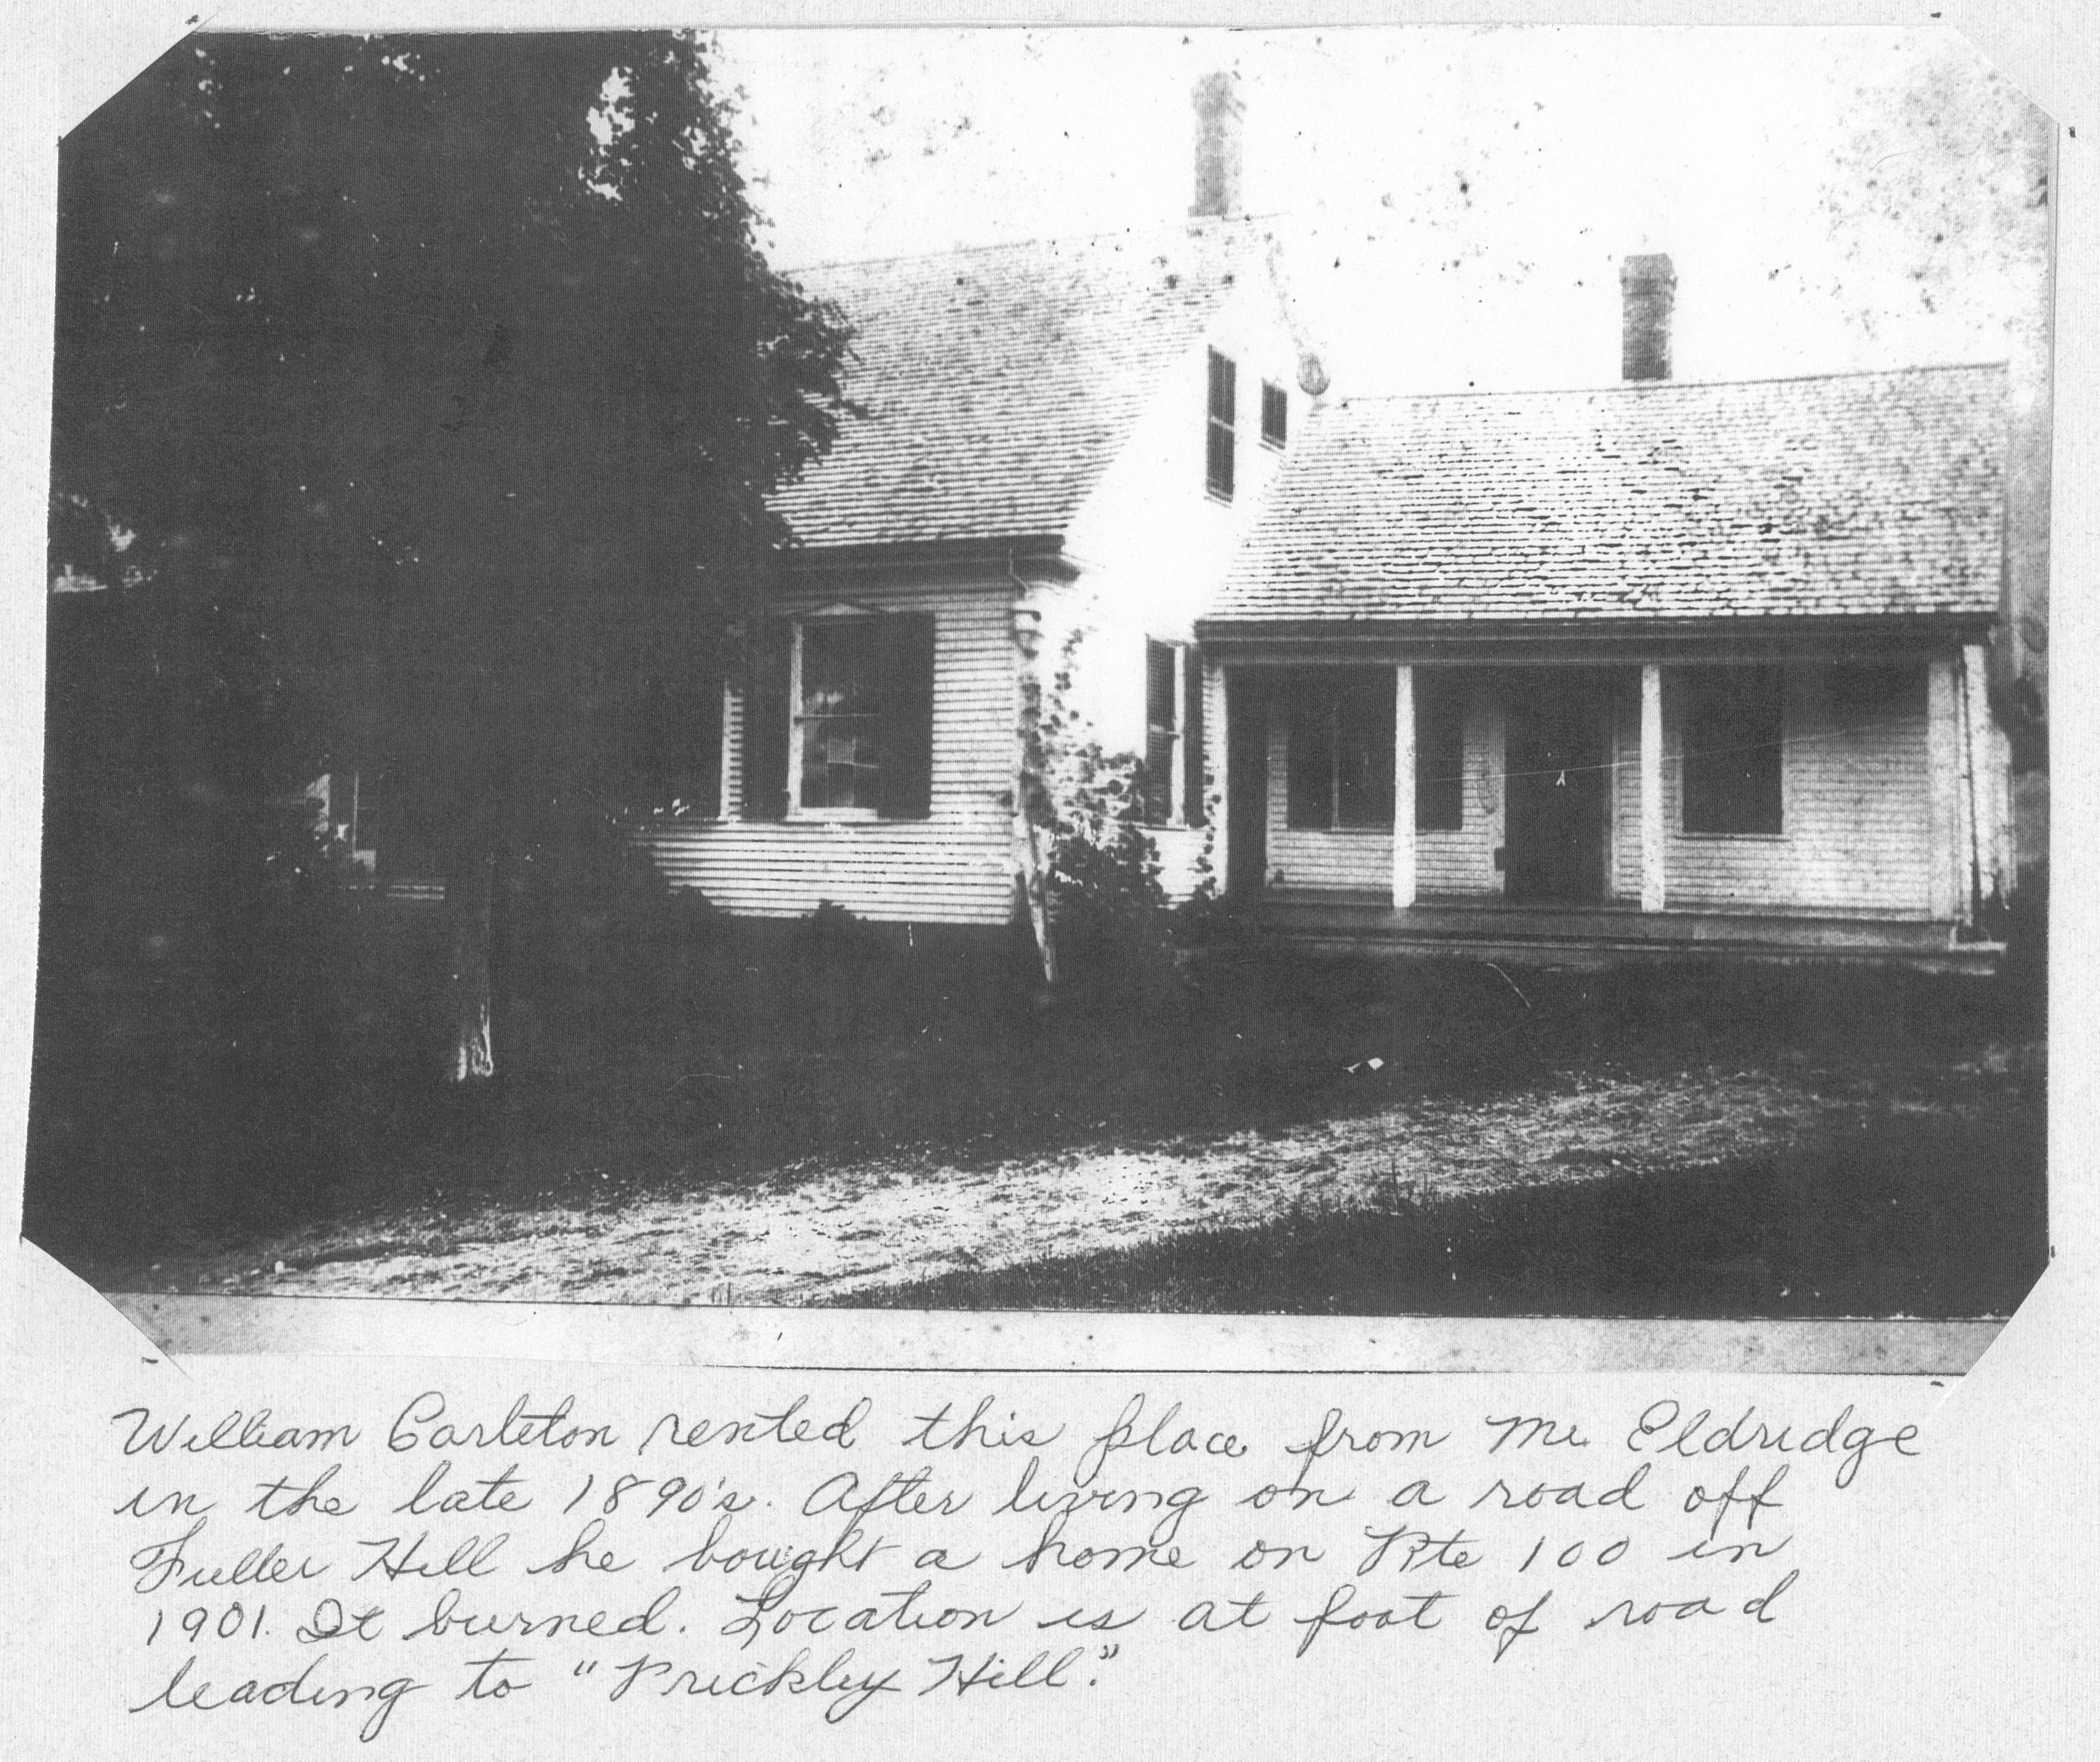 William Carleton rented this place from Mr. Eldridge
in the late 1890's. After living on a road off
Fuller Hill he bought a home on Rte 100 in
1901. It burned. Location is at foot of road
leading to "Prickley Hill."